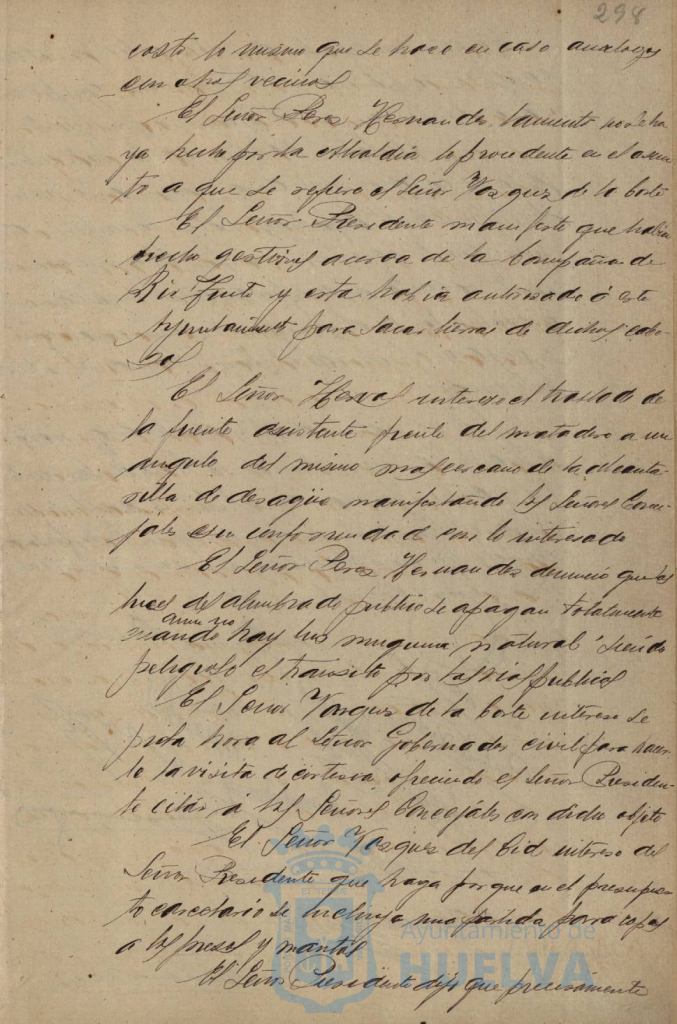 298
costo lo mismo que se hace en caso analogos
con otros vecinos
El Señor Perez Hernandez lamentó no se ha
ya hecho por la Alcaldia lo procedente en el asun
to a que se refiere el Señor Vazquez de la Corte
El Señor Presidente manifestó que habia
hecho gestiones acerca de la Compañia de
Rio Tinto y esta habia autorisado á este
Ayuntamiento para sacar tierras de dichos cabe-
zos
El Señor intereso el traslado de
la fuente existente frente del matadero a un
angulo del mismo mas cercano de la alcanta-
rilla de desagüe manifestando los Señores Conce-
jales su conformidad con lo interesado
El Señor Perez Hernandez denunció que las
luces del alumbrado publico se apagan totalmente
cuando aun no hay luz ninguna natural siendo
peligroso el transito por las vias publicas
El Señor Vazquez de la Corte intereso se
pida hora al Señor Gobernador civil para hacer
le la visita de cortesia, ofreciendo el Señor Presiden-
te citar á los Señores Concejales con dicho objeto
El Señor Vazquez del Cid intereso del
Señor Presidente que haga porque en el presupues
to carcelario se incluya una partida para ropas
a los presos y mantas
El Señor Presidente dijo que precisamente
Ayuntamiento de
HUELVA